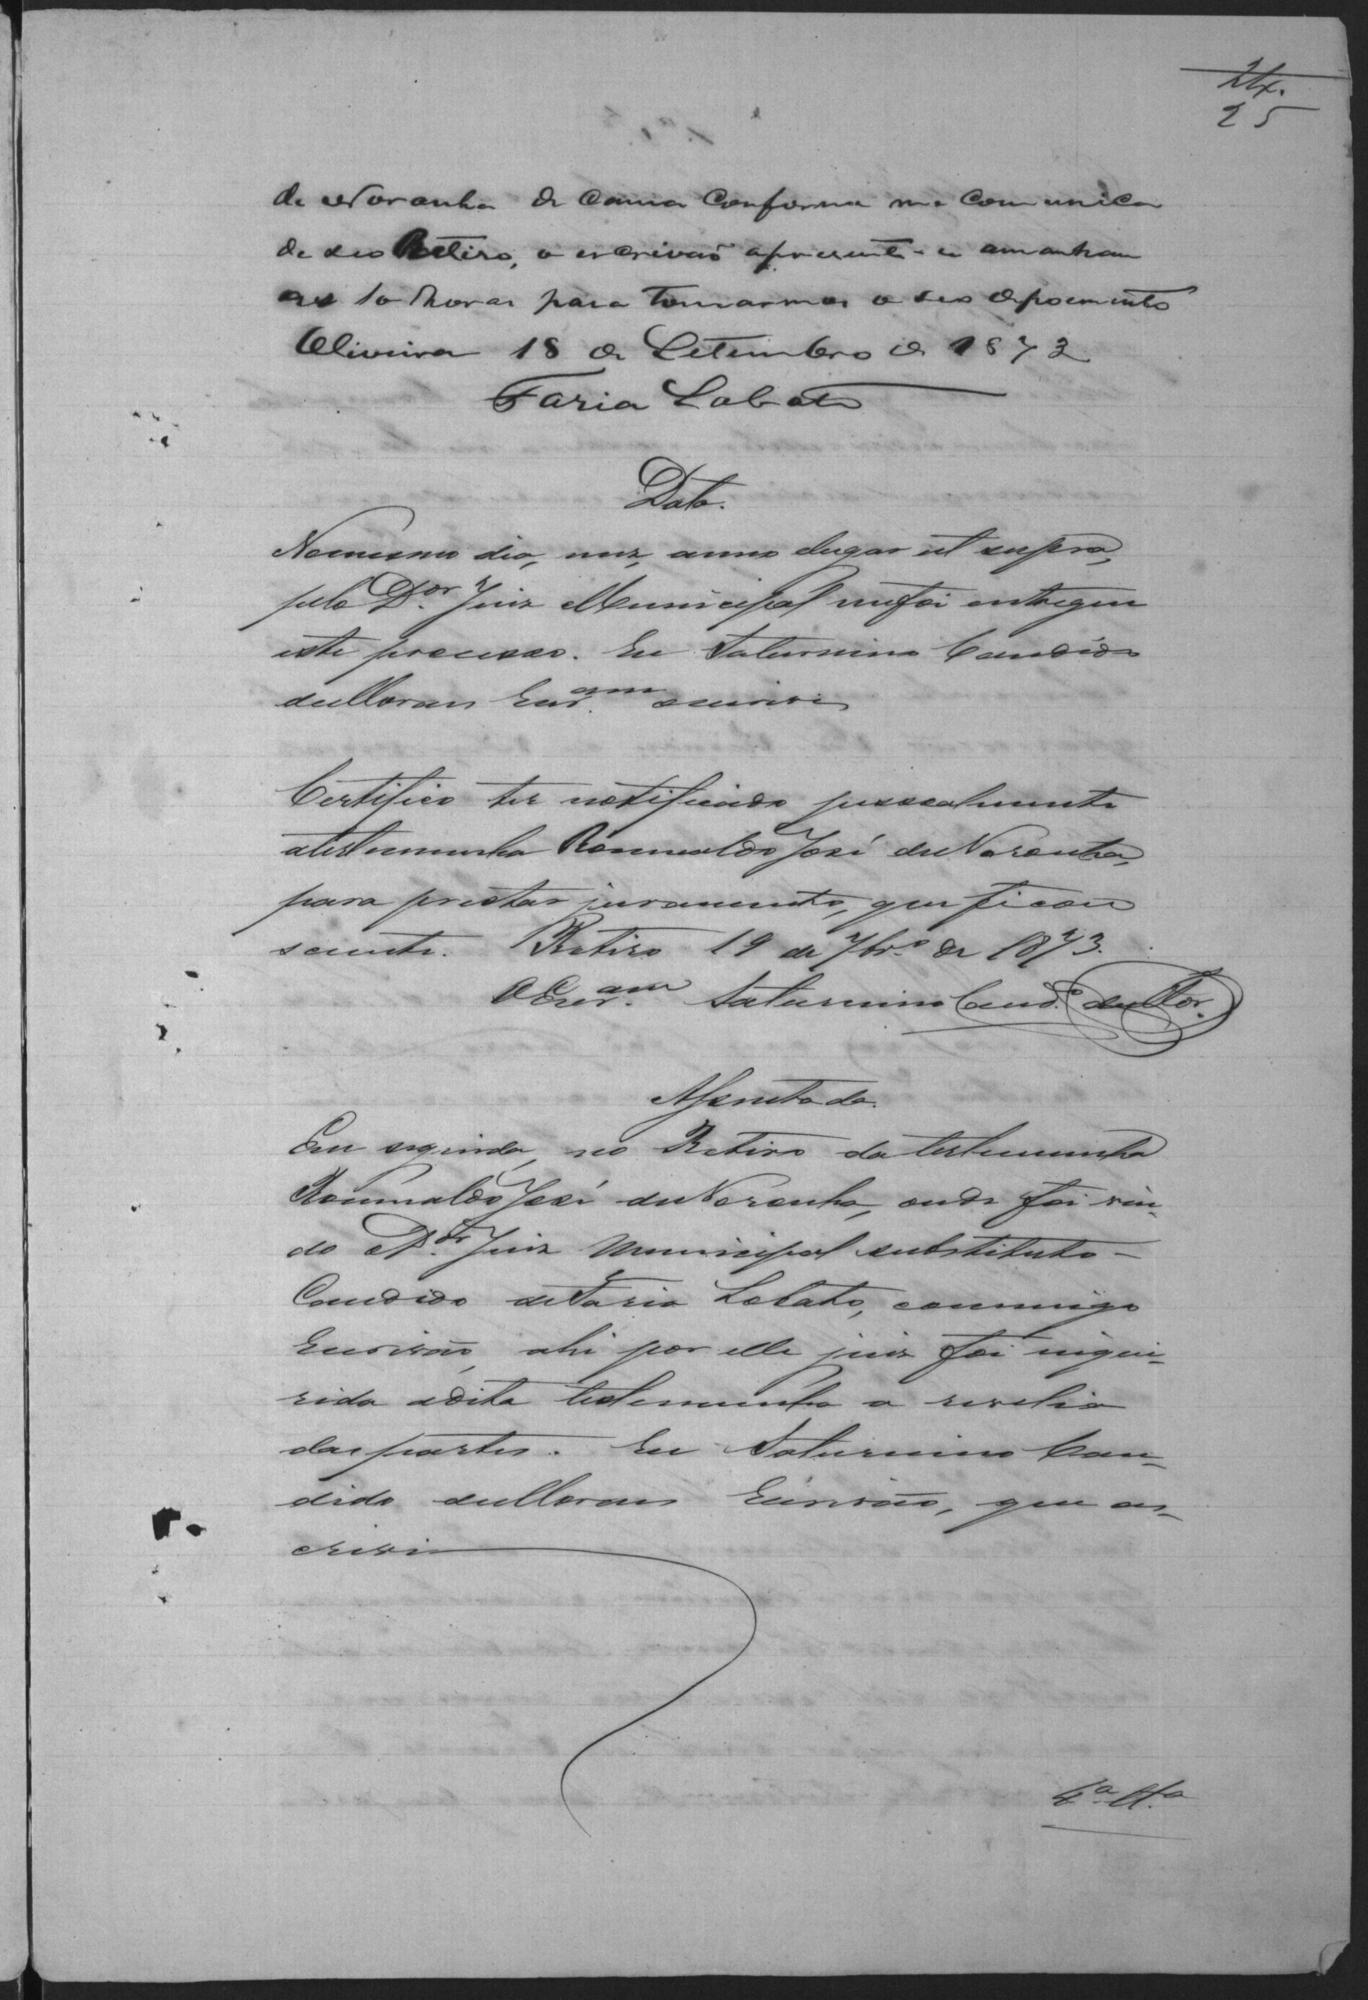 24.
25
de Noronha de Cama Conforme me comunica
de seo Retiro, o escrivaõ apresente-se amanham
as 10 horas para tomarmos o seo depoimento
Oliveira 18 de Setembro de 1873
Faria Lobato
Data.
Nomesmo dia, mez, anno elugar ut supra,
pelo D.or Juiz Municipal mefoi entregue
este processo. Eu Saturnino Candido
deMoraes Escr.am escrivi
Certifico ter notificado pessoalmente
atestemunha Romualdo José deNoronha,
para prestar juramento, que ficou
sciente. Retiro 19 de 7br.o de 1873.
OEscr.am Saturnino Cand.o deMor.
Assentada.
Em seguida, no Retiro da testemunha
Romualdo José deNoronha, onde foi vin-
do o D.or Juiz Municipal substituto-
Candido deFaria Lobato, commigo
Escrivaõ, ahi por elle juiz foi inque-
rida adita testemunha a revelia
das partes. Eu Saturnino Can-
dido deMoraes Escrivaõ, que es-
crivi
4.a tt.a